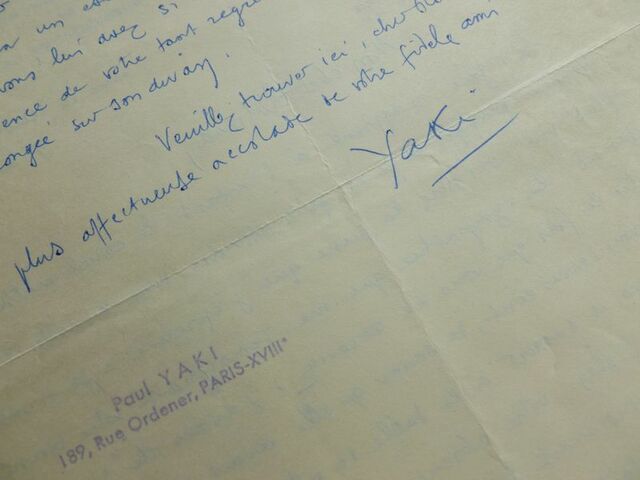 un
vous lui avez si
de votre tant regre
sur son divan.
Veuillez trouver ici, cher
plus affectueuse accolade de votre fidèle ami
Yaki
Paul YAKI
189, Rue Ordener, PARIS-XVIIIe